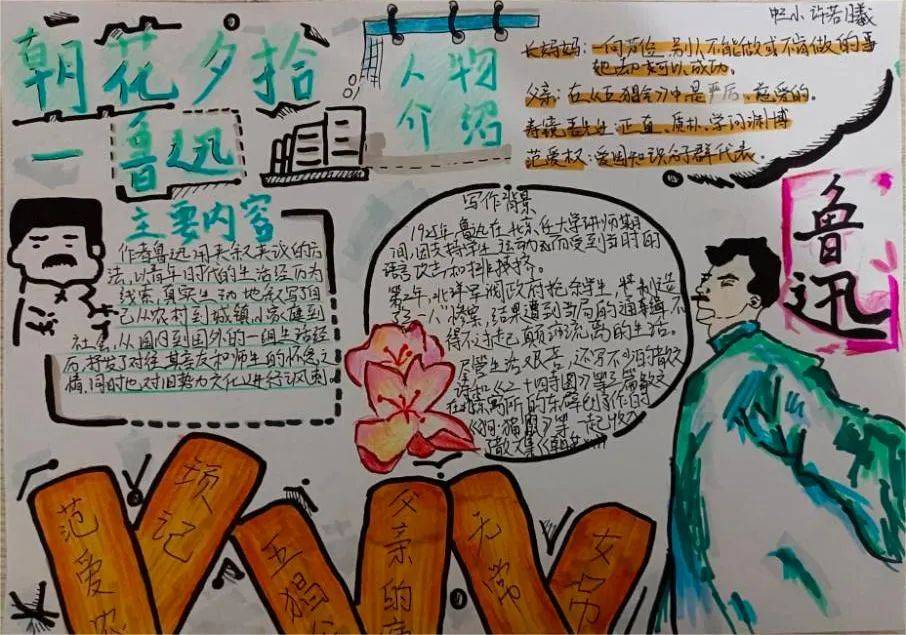 朝花夕拾
—鲁迅
人物
介绍
长妈妈:一向节俭 别人不能做或不肯做的事
她却可以成功。
父亲:在《五猖会》中是严厉、慈爱的。
寿镜吾先生:正直、质朴、学问渊博
范爱农:爱国知识分子群代表.
鲁迅
主要内容
作者鲁迅用夹叙夹议的方
法,以青年时代的生活经历为
线索,真实生动地叙写了自
己从农村到城镇,从家庭到
社会,从国内到国外的一组生活经
历,抒发了对往昔亲友和师生的怀念之
情,同时也对旧势力文化进行讽刺。
写作背景
1925年,鲁迅在北京任大学讲师期
间,因支持学生运动而受到当时的
攻击和排挤。
第二年,北洋军阀政府枪杀学生,制造
了三一八惨案,结果遭到当局的通缉不
得不过起颠沛流离的生活。
尽管生活艰苦,还写不少的散文
《二十四孝图》等三篇散文
在寓所的东壁下创作的
《狗·猫·鼠》等一起收入
散文集《朝
范爱农
琐记
五猖会
父亲的
无常
女吊